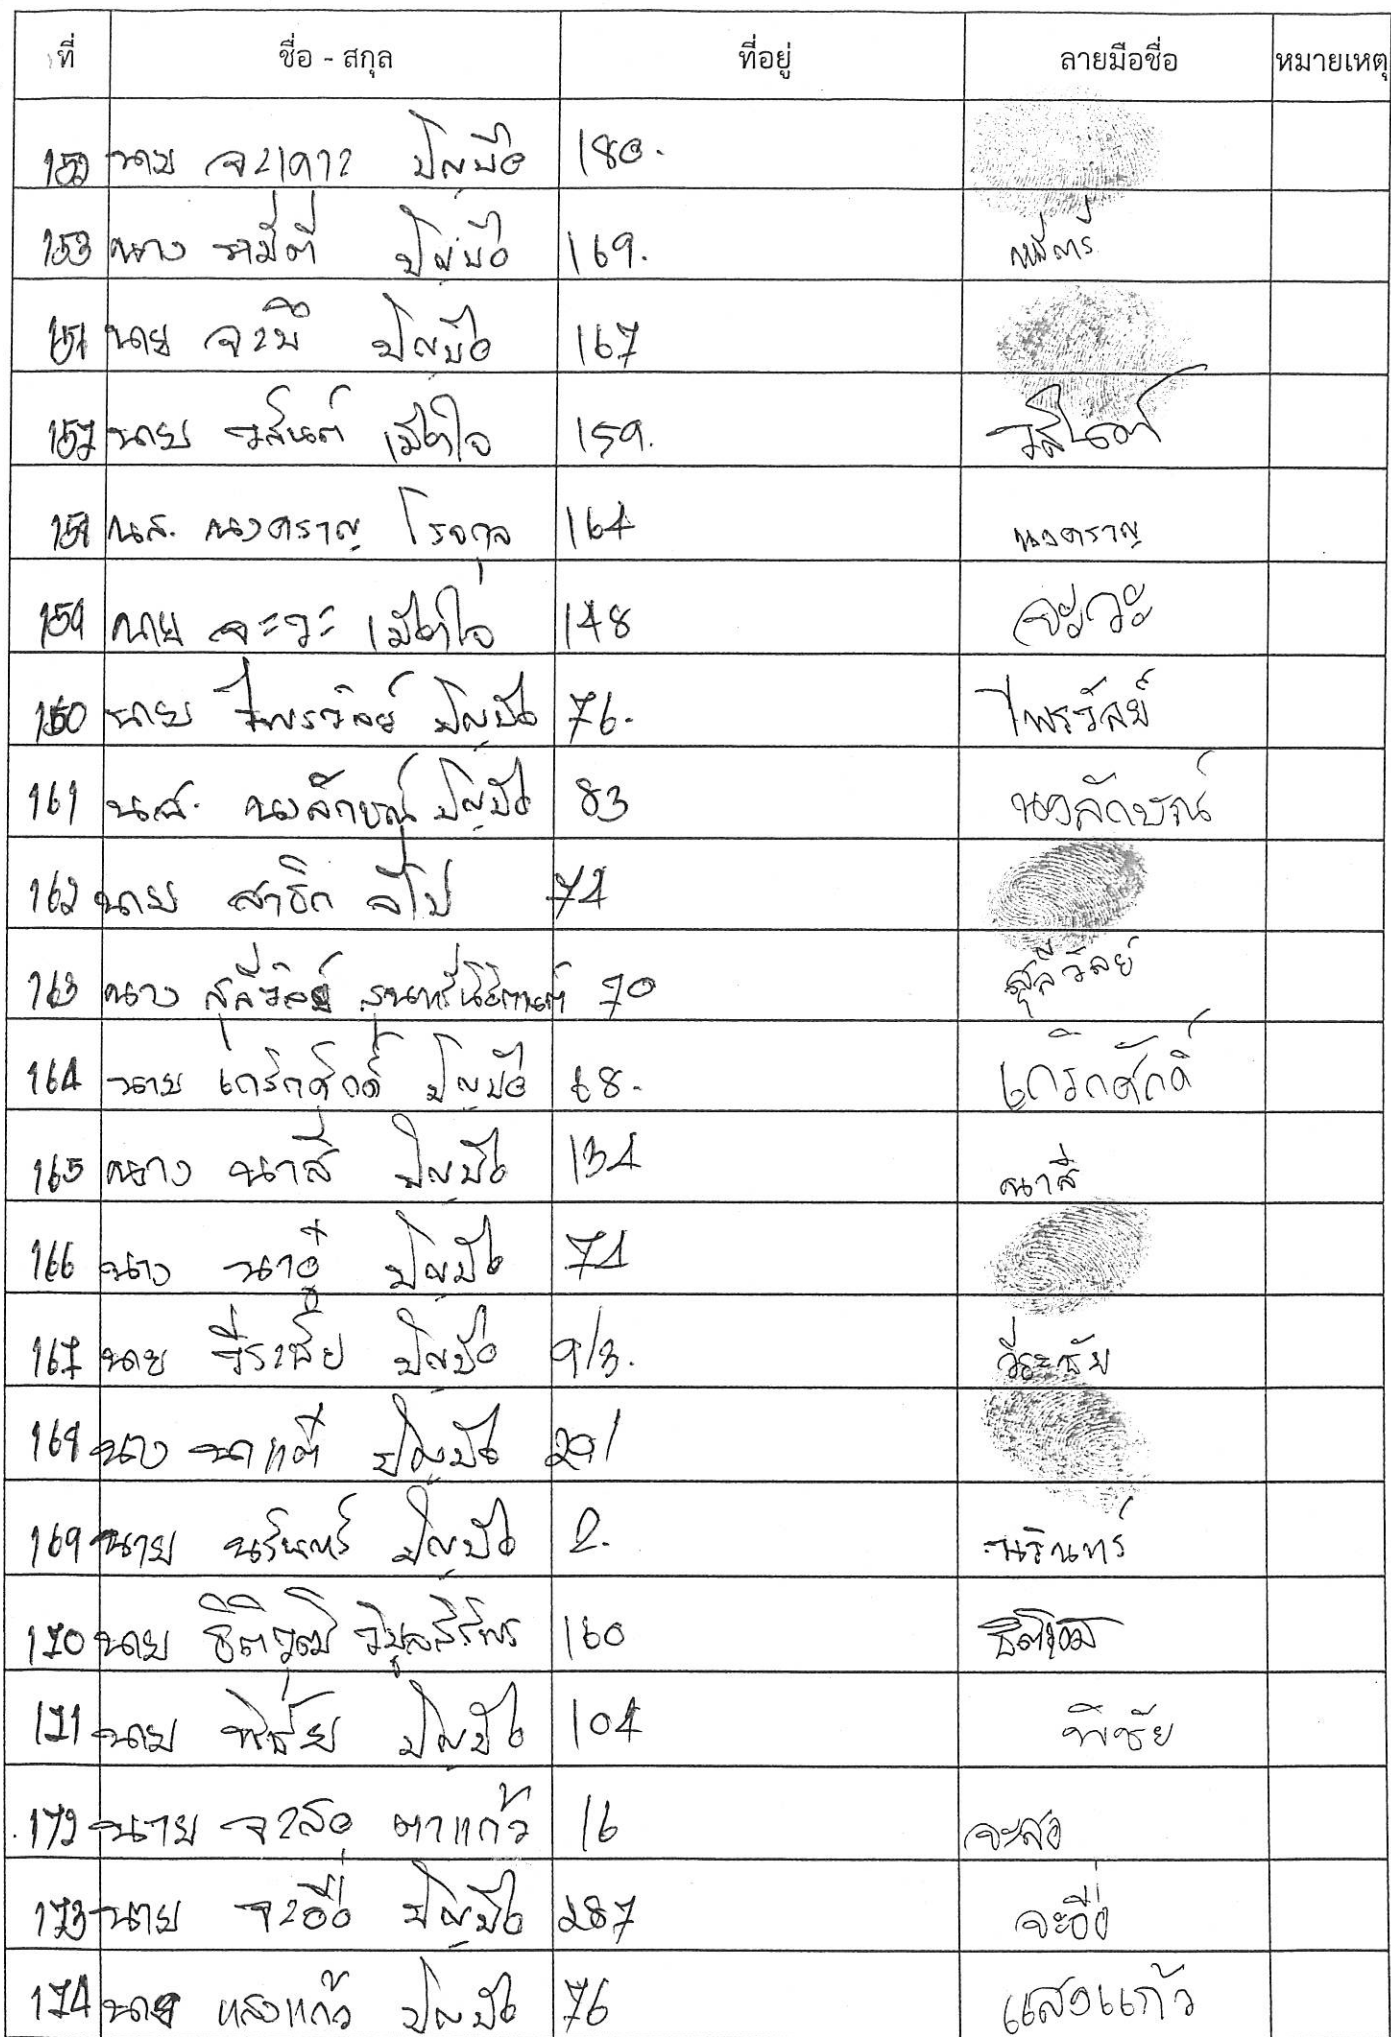 ที่ ชื่อ - สกุล ที่อยู่ ลายมือชื่อ หมายเหตุ
นาย ปัญบือ 180.
153 นาง นามีตี ปัญบือ 169.
นาย จะบี ปัญบือ 167
157 นาย วสันต์ 159. วสันต์
นส. นงคราญ โรจกุล 164 นงคราญ
159 นาย จะวะ 148 จะวะ
160 นาย ไพรวัลย์ ปัญบือ 76. ไพรวัลย์
161 นส. นงลักษณ์ ปัญบือ 83 นงลักษณ์
162 นาย สาธิต 74
163 นาง สุลีวัลย์ 70 สุลีวัลย์
164 นาย เกริกศักดิ์ ปัญบือ 68. เกริกศักดิ์
165 นาง นาสี ปัญบือ 134 นาสี
166 นาง นาอู๋ ปัญบือ 74
167 นาย วีระชัย ปัญบือ 9/3. วีระชัย
นาง นาแต๋ ปัญบือ
169 นาย นรินทร์ ปัญบือ 2. นรินทร์
170 นาย ธิติวุฒิ วิบูลสิริพร 160 ธิติวุฒิ
171 นาย พิชัย ปัญบือ 104 พิชัย
172 นาย จะสอ ตาแก้ว 16 จะสอ
173 นาย จะอื่อ ปัญบือ 287 จะอื่อ
174 นาย แสงแก้ว ปัญบือ 76 แสงแก้ว